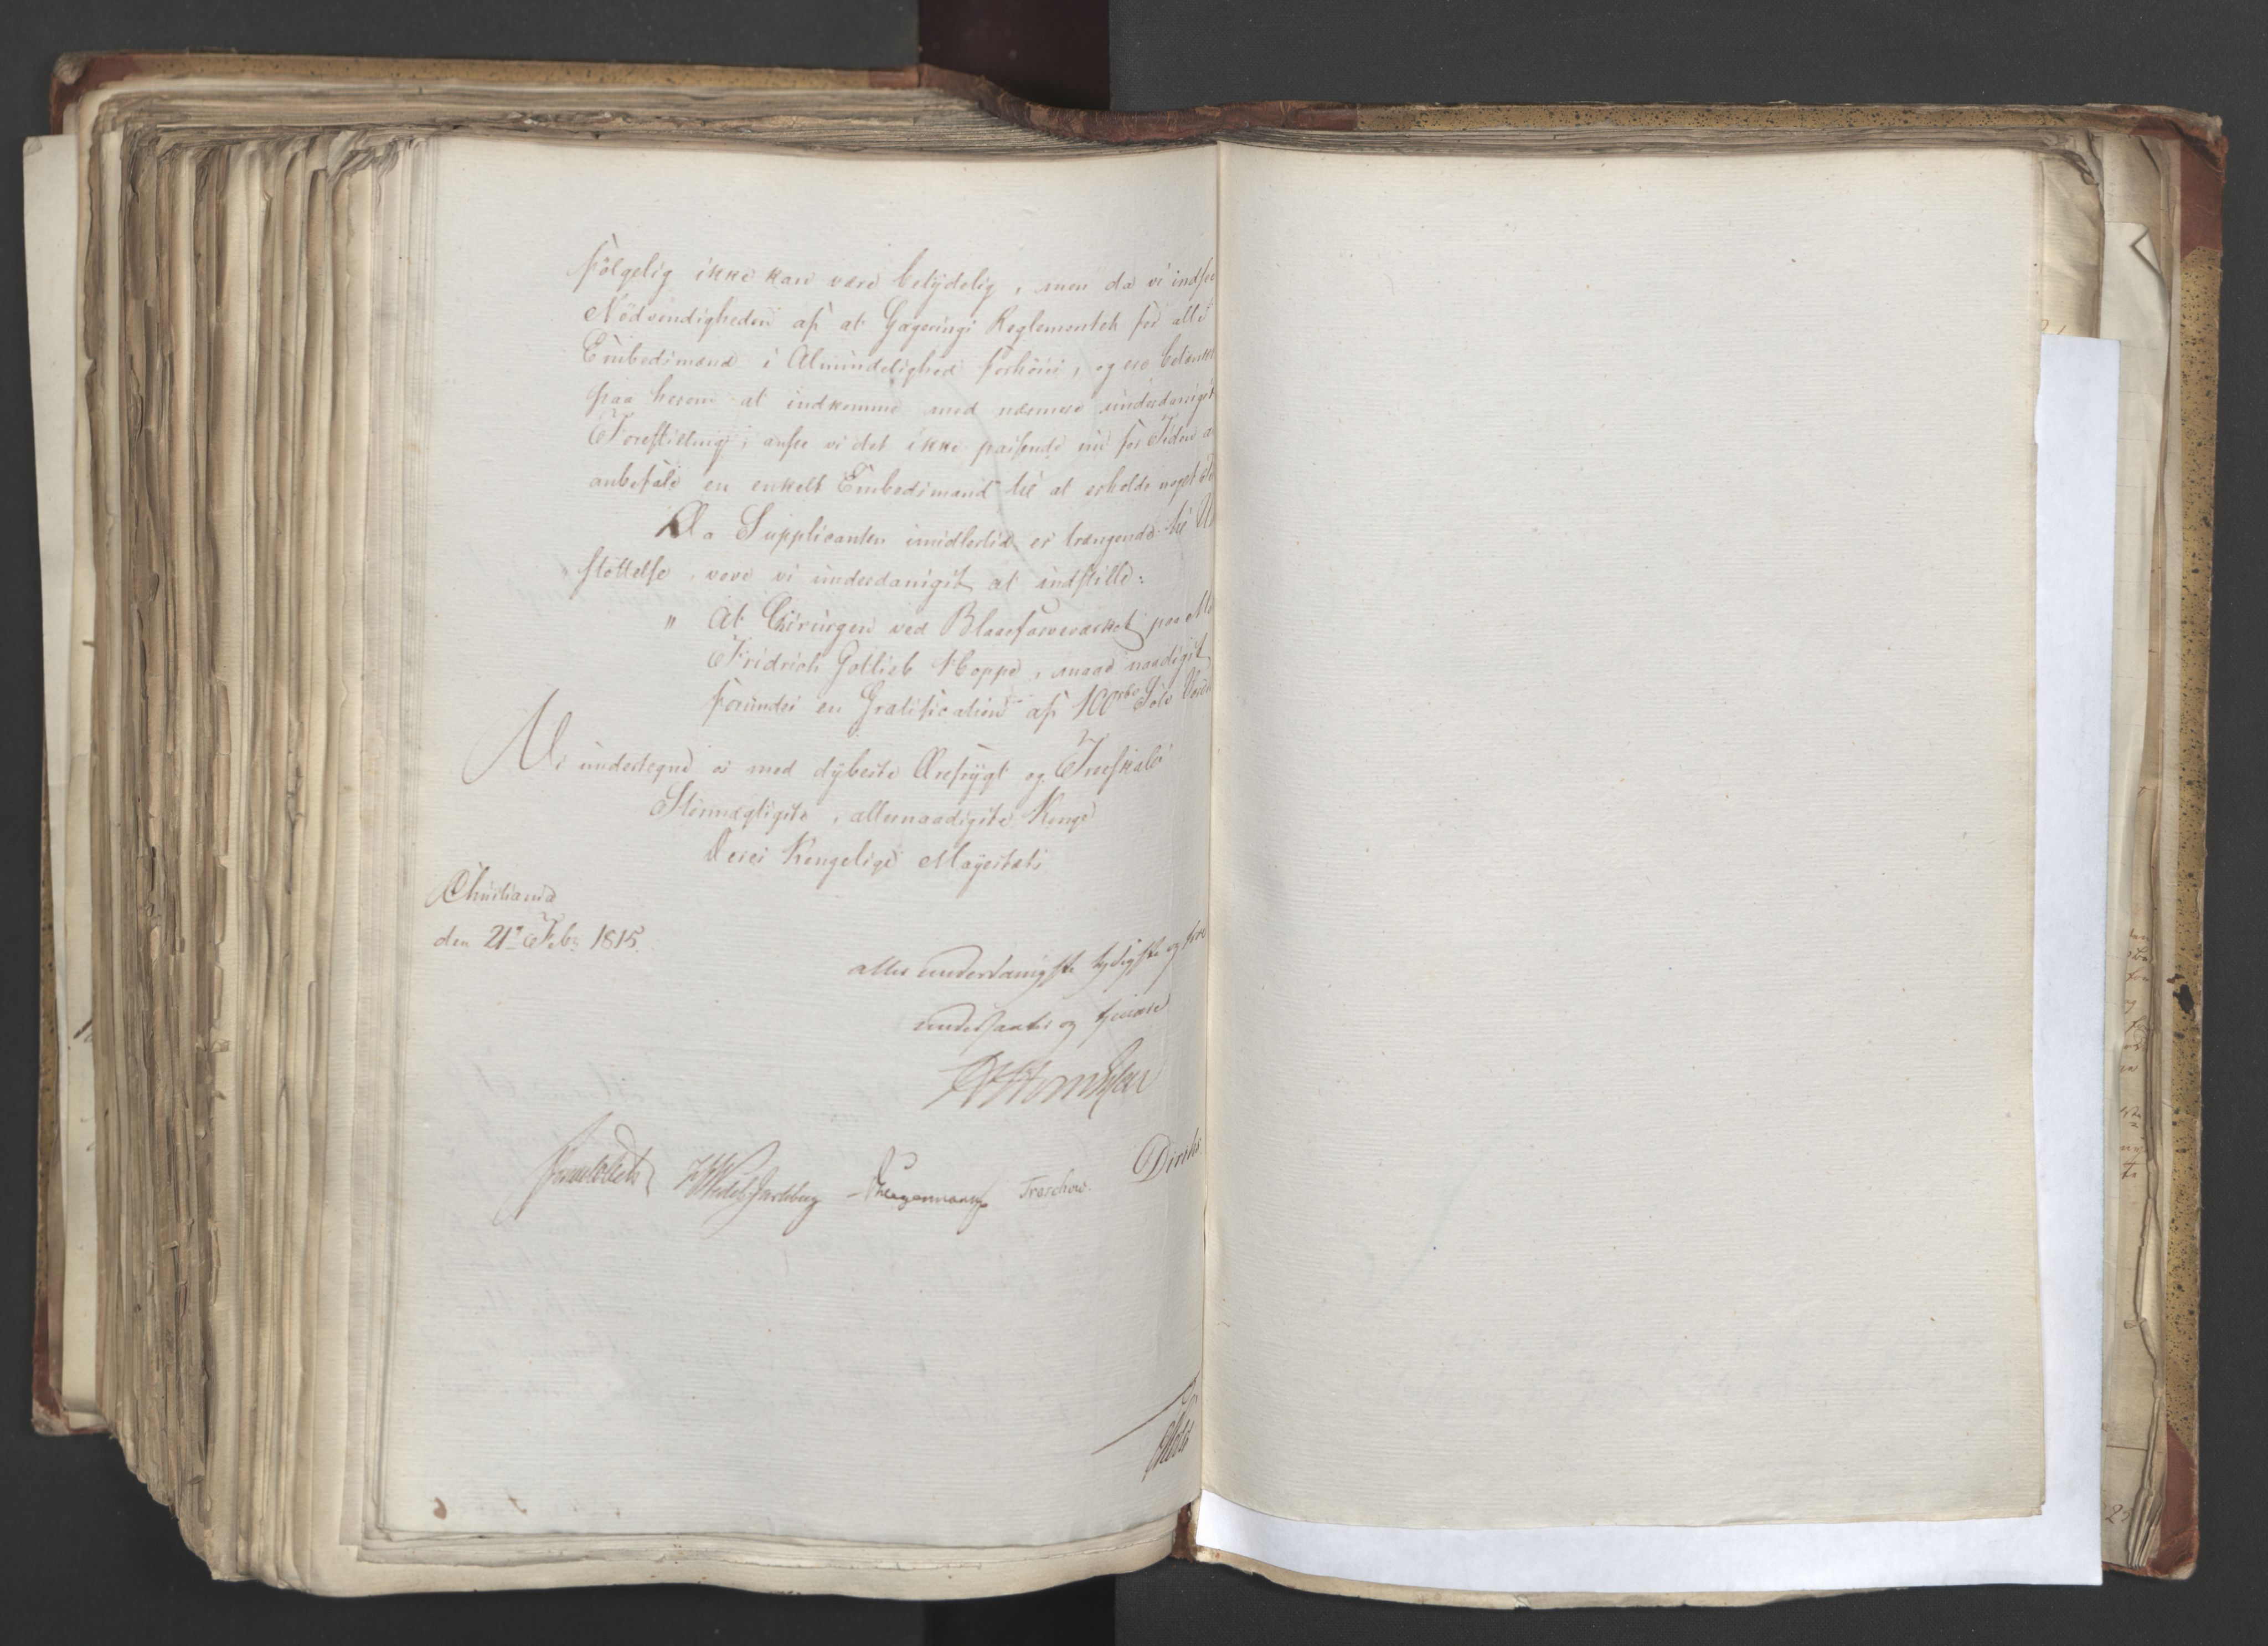 følgelig ikke kan være betydelig, men da vi indsee
Nödvendigheden af at Gagerings Reglementet for alle
Embedsmænd i Almindelighed forhöies, og ere betænkt
paa herom at indkomme med nærmere underdanigst
Forestilling, ansee vi det ikke passende nu for Tiden a
anbefale en enkelt Embedsmand til at erholde noget
Da Supplicanten imidlertid er trængende til Un
støttelse, vove vi underdanigst at indstille:
" At Chirurgen ved Blaaefarveværket paa Mo
Fridrich Gotlieb Hoppe, maae naadigst
forundes en Gratification af 100 rbd Sölv Værdi
Vi undertegne os med dybeste Ærefrygt og Troeskab
Stormægtigste, allernaadigste Konge
Deres Kongelige Mayestæts
Christiania
den 21de Febr 1815.
aller underdanigste lydigste og troe
undersaatter og tjenere
Sommerhielm
Wedel Jarlsberg Hegermann Treschow. Diriks